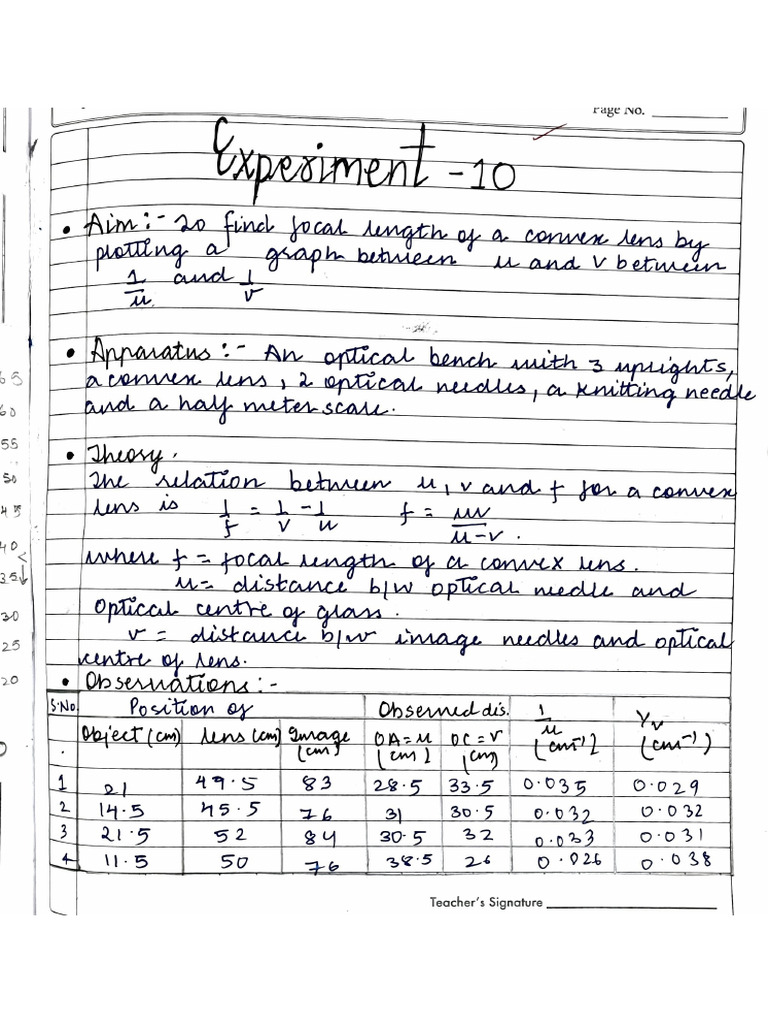 Page No.
Experiment - 10
• Aim :- To find focal length of a convex lens by
plotting a graph between u and v between
1/u and 1/v
• Apparatus :- An optical bench with 3 uprights,
a convex lens, 2 optical needles, a knitting needle
and a half meter scale.
• Theory.
The relation between u, v and f for a convex
lens is 1/f = 1/v - 1/u f = uv/u-v.
where f = focal length of a convex lens.
u = distance b/w optical needle and
optical centre of glass.
v = distance b/w image needles and optical
centre of lens.
• Observations :-
S.No. Position of Observed dis. 1/u (cm⁻¹) 1/v (cm⁻¹)
Object (cm) lens (cm) Image (cm) OA = u (cm) OC = v (cm)
1 21 49.5 83 28.5 33.5 0.035 0.029
2 14.5 45.5 76 31 30.5 0.032 0.032
3 21.5 52 84 30.5 32 0.033 0.031
4 11.5 50 76 38.5 26 0.026 0.038
Teacher's Signature
65
60
55
50
45
40
35
30
25
20